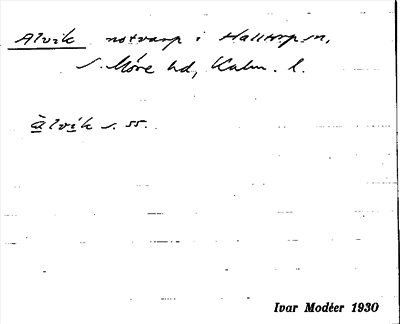 Alvik notvarp i Halltorp sn,
S. Möre hd, Kalm. l.
ālvik s. 55.
Ivar Modéer 1930